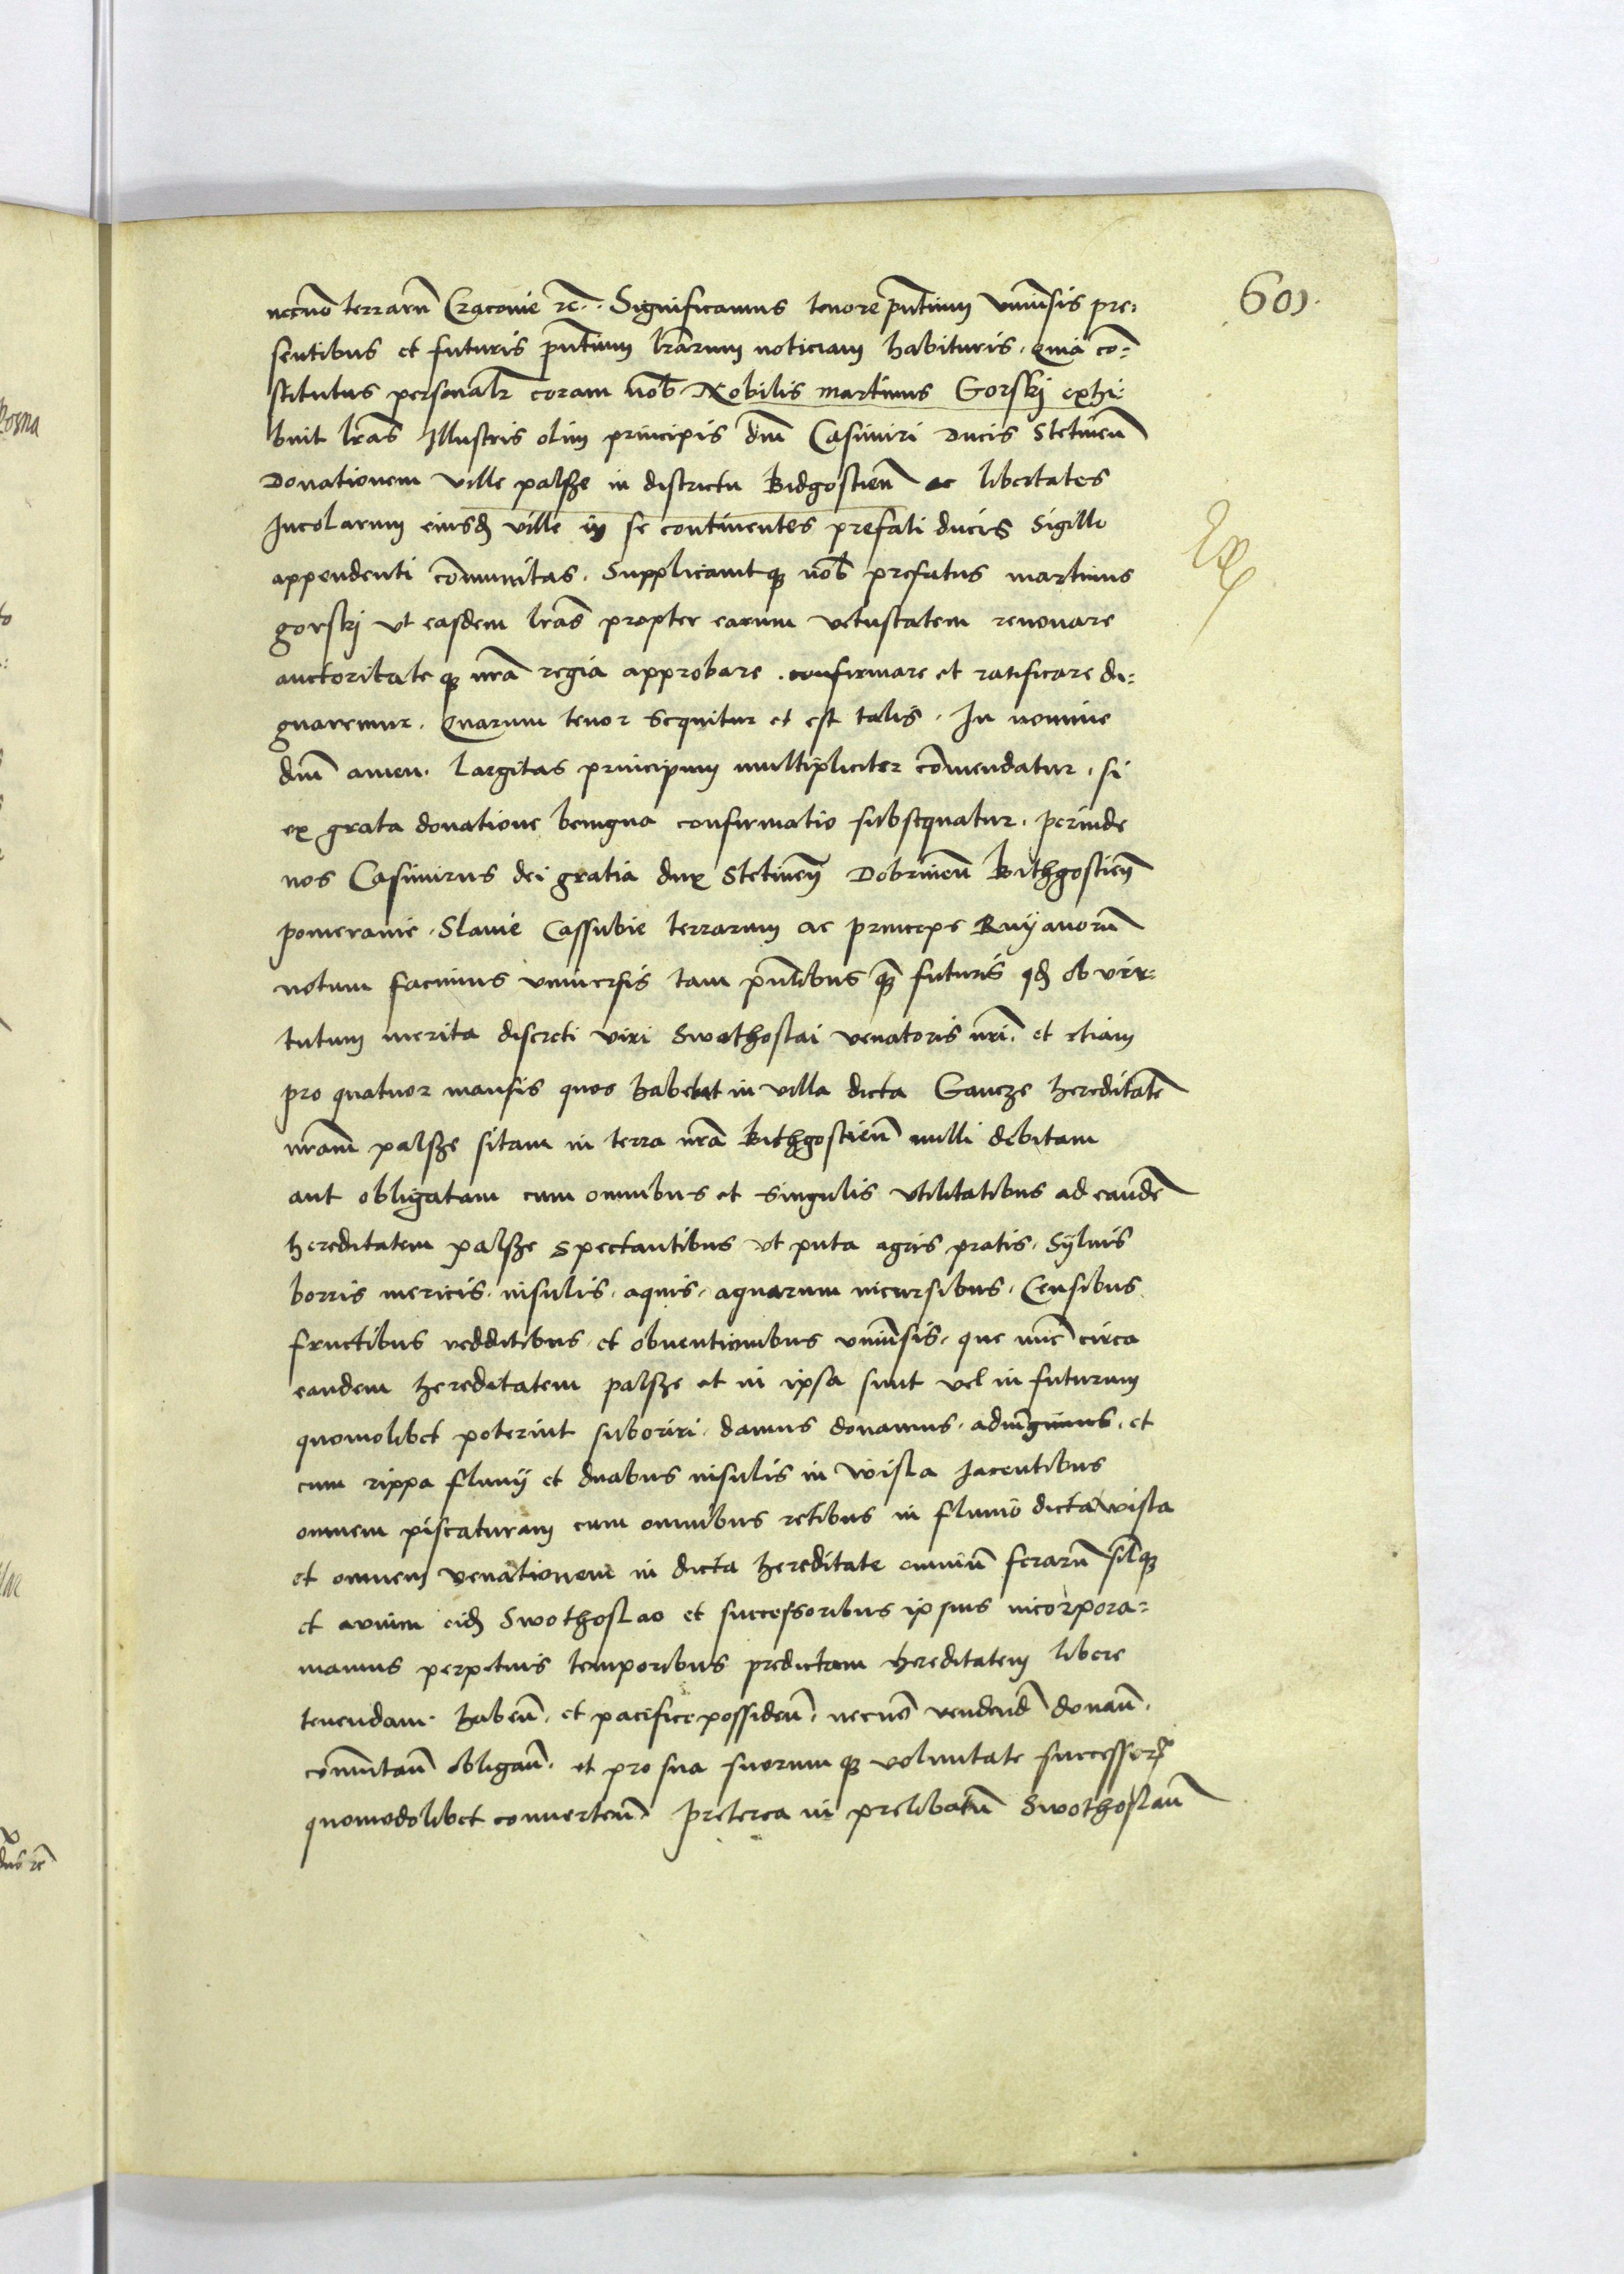 601.
necnõ terrarũ Cracovie rc̃. Significamus tenore pñtium vniũsis pre-
sentibus et futuris pñtium lrãrum noticiam habituris. quia co-
stitutus personalr coram nob. Nobilis martinus Gorskj exhi-
buit lrãs Illustris olim principis dñi Casimiri Ducis Stetineñ
Donationem ville palsze in districtu Bidgostieñ ac libertates
Incolarum eiusd ville in se continentes prefati ducis Sigillo
appendenti cõmunitas. Supplicauitq nob prefatus martinus
gorskj vt easdem lrãs propter earum vetustatem renouare
auctoritateq nrã regia approbare . confirmare et ratificare di-
gnaremur. Quarum tenor sequitur et est talis. In nomine
dñi amen. largitas principum multipliciter cõmendatur, si
ex grata donatione benigna confirmatio subsequatur. perinde
nos Casimirus dei gratia dux Stetineñ Dobrineñ Bithgostieñ
pomeranie. Slauie Cassubie terrarum ac princeps Ruyanorũ
notum facimus vniuersis tam pñtibus q̃ futuris qd ob vir-
tutum merita discreti viri Swothoslai venatoris nrĩ. et etiam
pro quatuor mansis quos habebat in villa dicta Gancze hereditatẽ
nrãm palsze sitam in terra nrã Bithgostieñ nulli debitam
aut obligatam cum omnibus et singulis vtilitatibus ad eandẽ
hereditatem palsze spectantibus vt puta agris pratis. Syluis
borris mericis. insulis. aquis. aquarum incursibus. Censibus
fructibus redditibus et obuentionibus vniũsis. que nũc circa
eandem hereditatem palsze et in ipsa sunt vel in futurum
quomolibet poterint suboriri. damus donamus. adiũgimus. et
cum rippa fluuij et duabus insulis in wisla Jacentibus
omnem piscaturam cum omnibus retibus in fluuio dicta wisla
et omnem venationem in dicta hereditate omniũ ferarũ silq
et auium eid Swothoslao et successoribus ipsius incorpora-
mamus perpetuis temporibus predictam hereditatem libere
tenendam. habeñ. et pacifice possideñ. necnõ vendend̃ donañ.
cõmutañ obligañ. et pro sua suorumq voluntate successor
quomodolibet conuerteñ. Preterea in prelibatũ Swothoslaũ